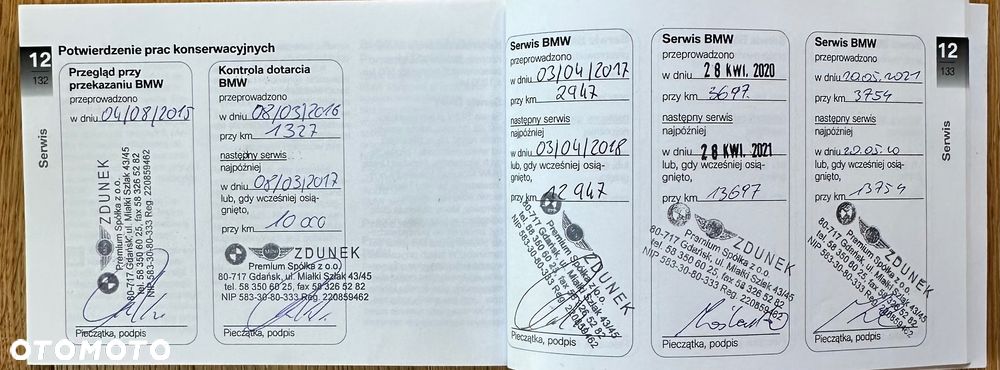 12
132
Serwis
Potwierdzenie prac konserwacyjnych
Przegląd przy
przekazaniu BMW
przeprowadzono
w dniu 04/08/2015
ZDUNEK
Premium Spółka z o.o.
80-717 Gdańsk, ul. Miałki Szlak 43/45
tel. 58 350 60 25, fax 58 326 52 82
NIP 583-30-80-333 Reg. 220859462
Pieczątka, podpis
Kontrola dotarcia
BMW
przeprowadzono
w dniu 08/03/2016
przy km 1327
następny serwis
najpóźniej
w dniu 08/03/2017
lub, gdy wcześniej osią-
gnięto,
przy km 10 000
ZDUNEK
Premium Spółka z o.o.
80-717 Gdańsk, ul. Miałki Szlak 43/45
tel. 58 350 60 25, fax 58 326 52 82
NIP 583-30-80-333 Reg. 220859462
Pieczątka, podpis
Serwis BMW
przeprowadzono
w dniu 03/04/2017
przy km 2947
następny serwis
najpóźniej
w dniu 03/04/2018
lub, gdy wcześniej osią-
gnięto,
przy km 12 947
ZDUNEK
Premium Spółka z o.o.
80-717 Gdańsk, ul. Miałki Szlak 43/45
tel. 58 350 60 25, fax 58 326 52 82
NIP 583-30-80-333 Reg. 220859462
Pieczątka, podpis
Serwis BMW
przeprowadzono
w dniu 28 KWI. 2020
przy km 3697
następny serwis
najpóźniej
w dniu 28 KWI. 2021
lub, gdy wcześniej osią-
gnięto,
przy km 13697
ZDUNEK
Premium Spółka z o.o.
80-717 Gdańsk, ul. Miałki Szlak 43/45
tel. 58 350 60 25, fax 58 326 52 82
NIP 583-30-80-333 Reg. 220859462
Pieczątka, podpis
Serwis BMW
przeprowadzono
w dniu 20.05.2021
przy km 3754
następny serwis
najpóźniej
w dniu 20.05.20
lub, gdy wcześniej osią-
gnięto,
przy km 13754
ZDUNEK
Premium Spółka z o.o.
80-717 Gdańsk, ul. Miałki Szlak 43/45
tel. 58 350 60 25, fax 58 326 52 82
NIP 583-30-80-333 Reg. 220859462
Pieczątka, podpis
12
133
Serwis
OTOMOTO